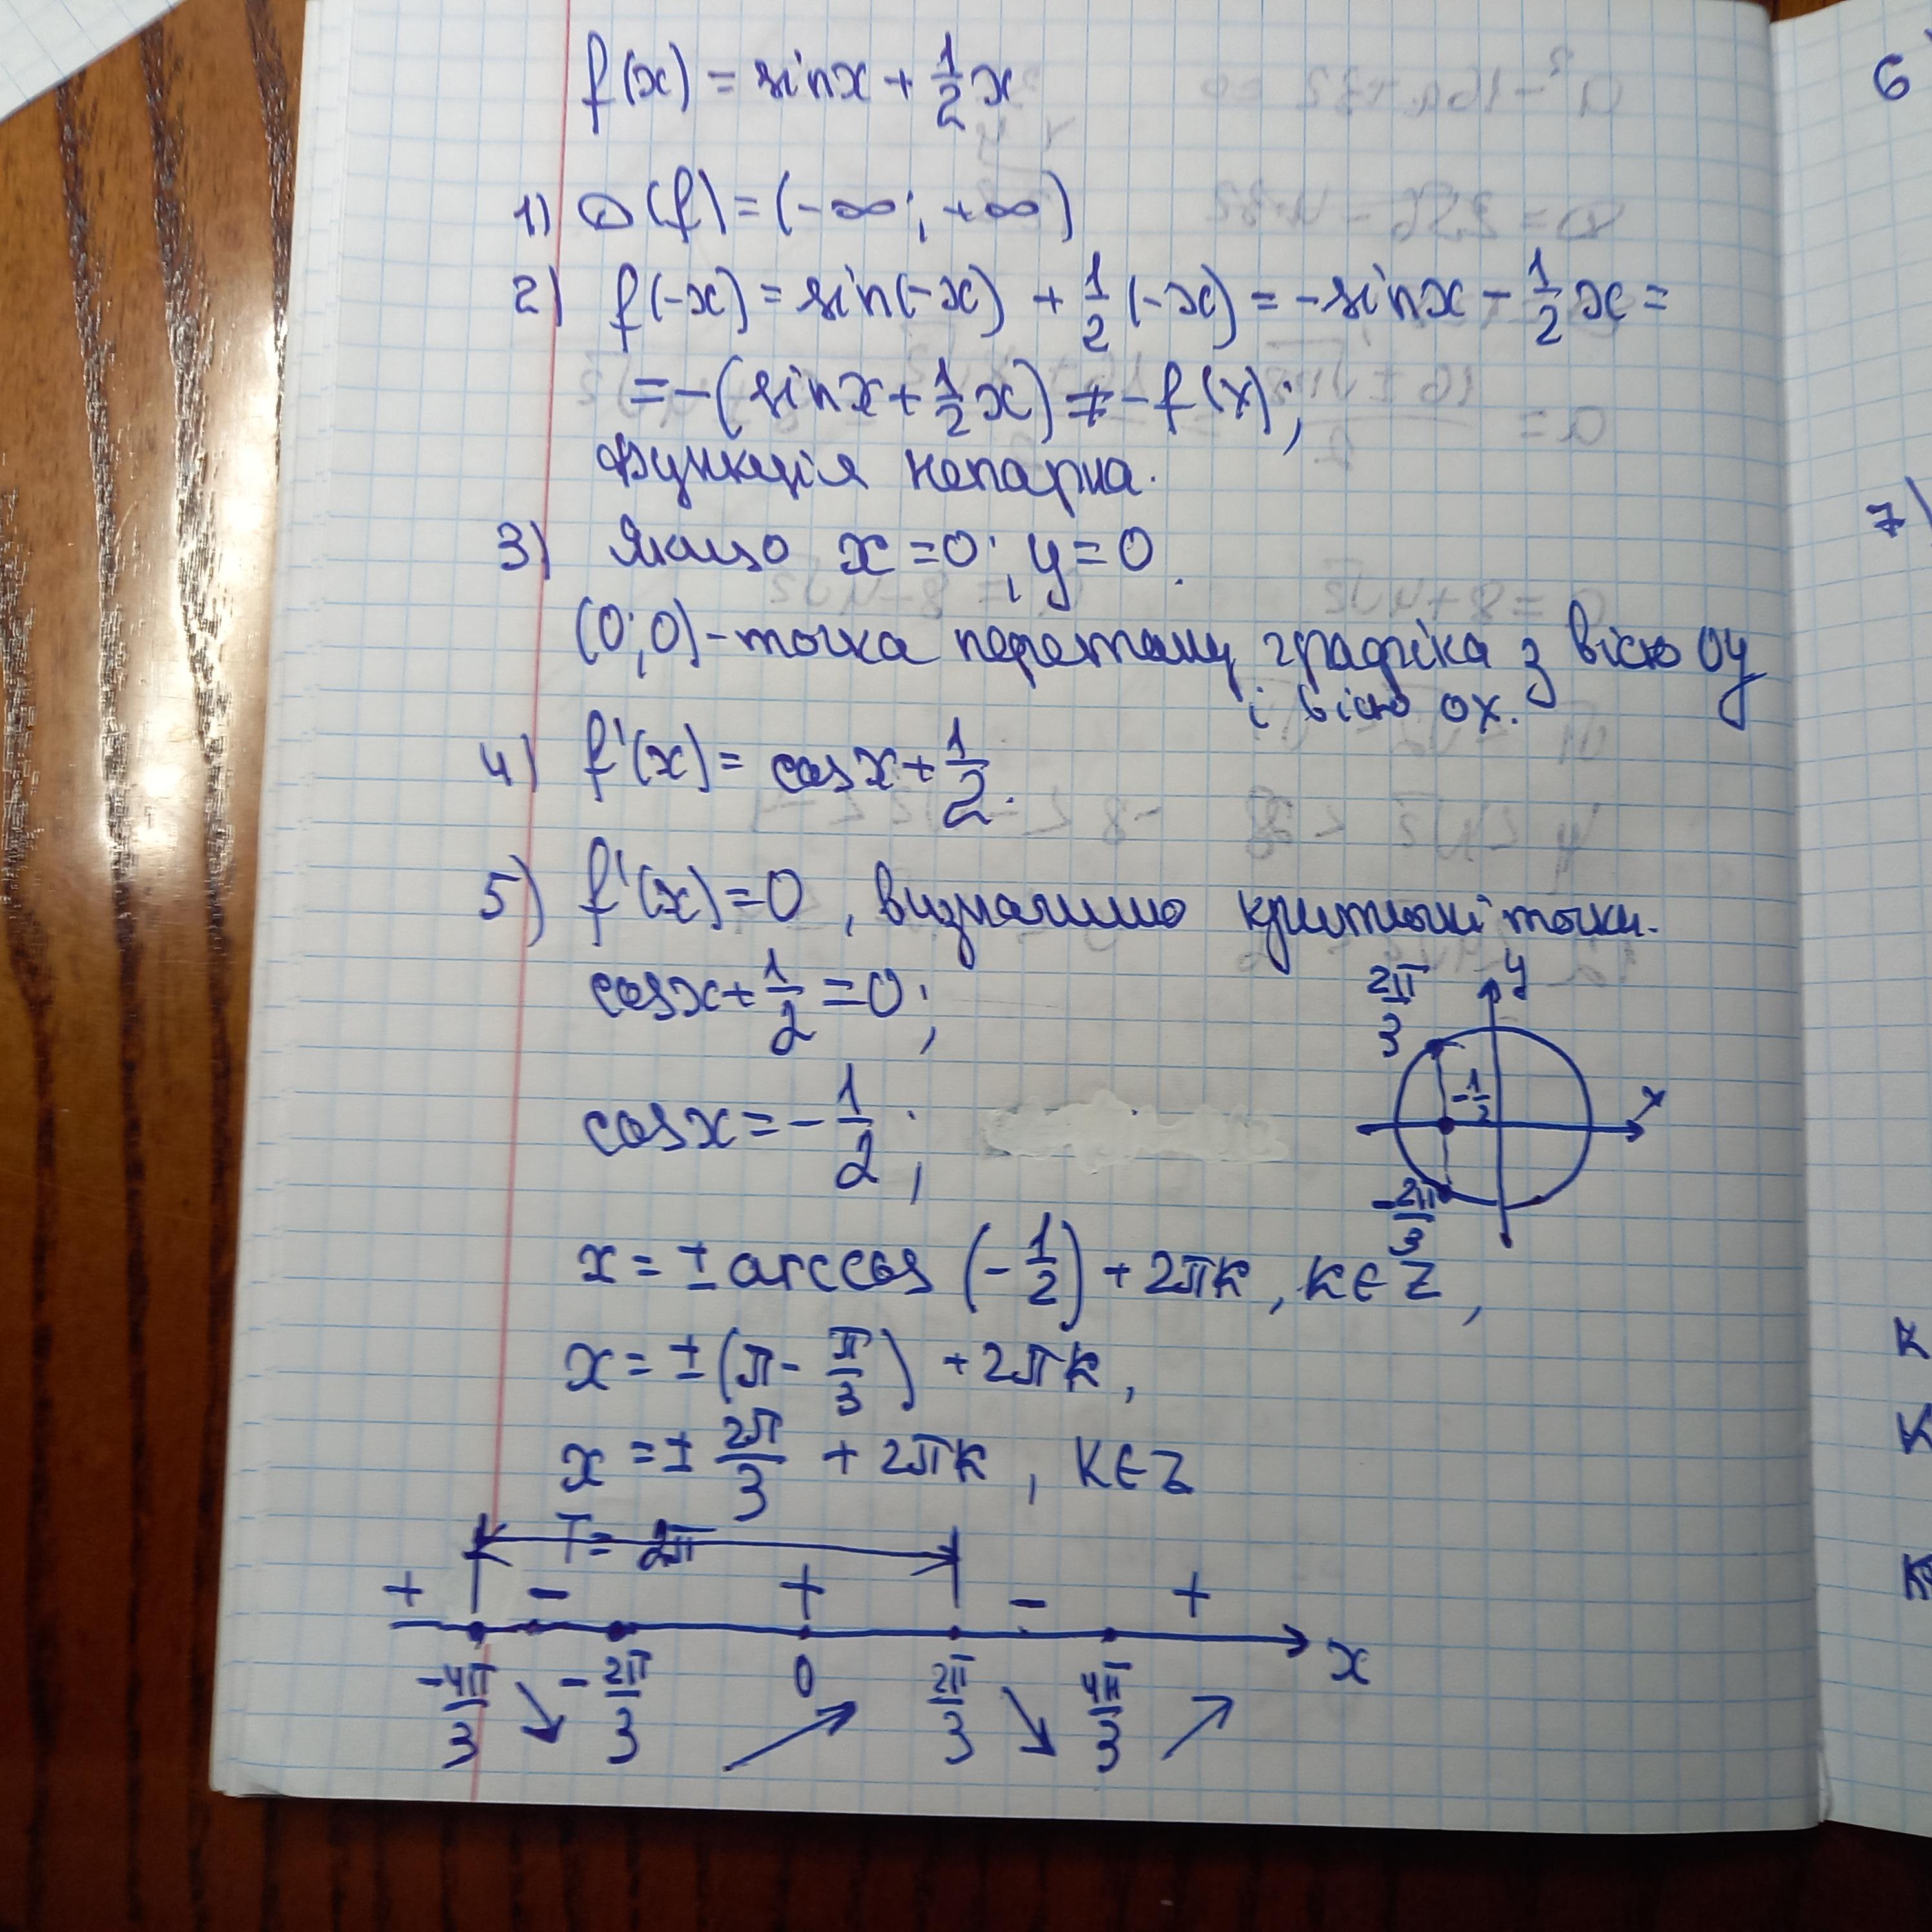 f(x) = sinx + 1/2 x
1) D(f) = (-∞; +∞)
2) f(-x) = sin(-x) + 1/2 (-x) = -sinx - 1/2 x =
= -(sinx + 1/2 x) ≠ -f(x);
Функція непарна.
3) Якщо x = 0; y = 0.
(0;0) - точка перетину графіка з вісю oy
і вісю ox.
4) f'(x) = cosx + 1/2.
5) f'(x) = 0, визначимо критичні точки.
cosx + 1/2 = 0;
cosx = -1/2;
2π/3 y
-1/2 x
-2π/3
x = ± arccos (-1/2) + 2πk, k∈Z,
x = ± (π - π/3) + 2πk,
x = ± 2π/3 + 2πk, k∈Z
T = 2π
+ - + - +
-4π/3 -2π/3 0 2π/3 4π/3 x
6
7)
k
k
k